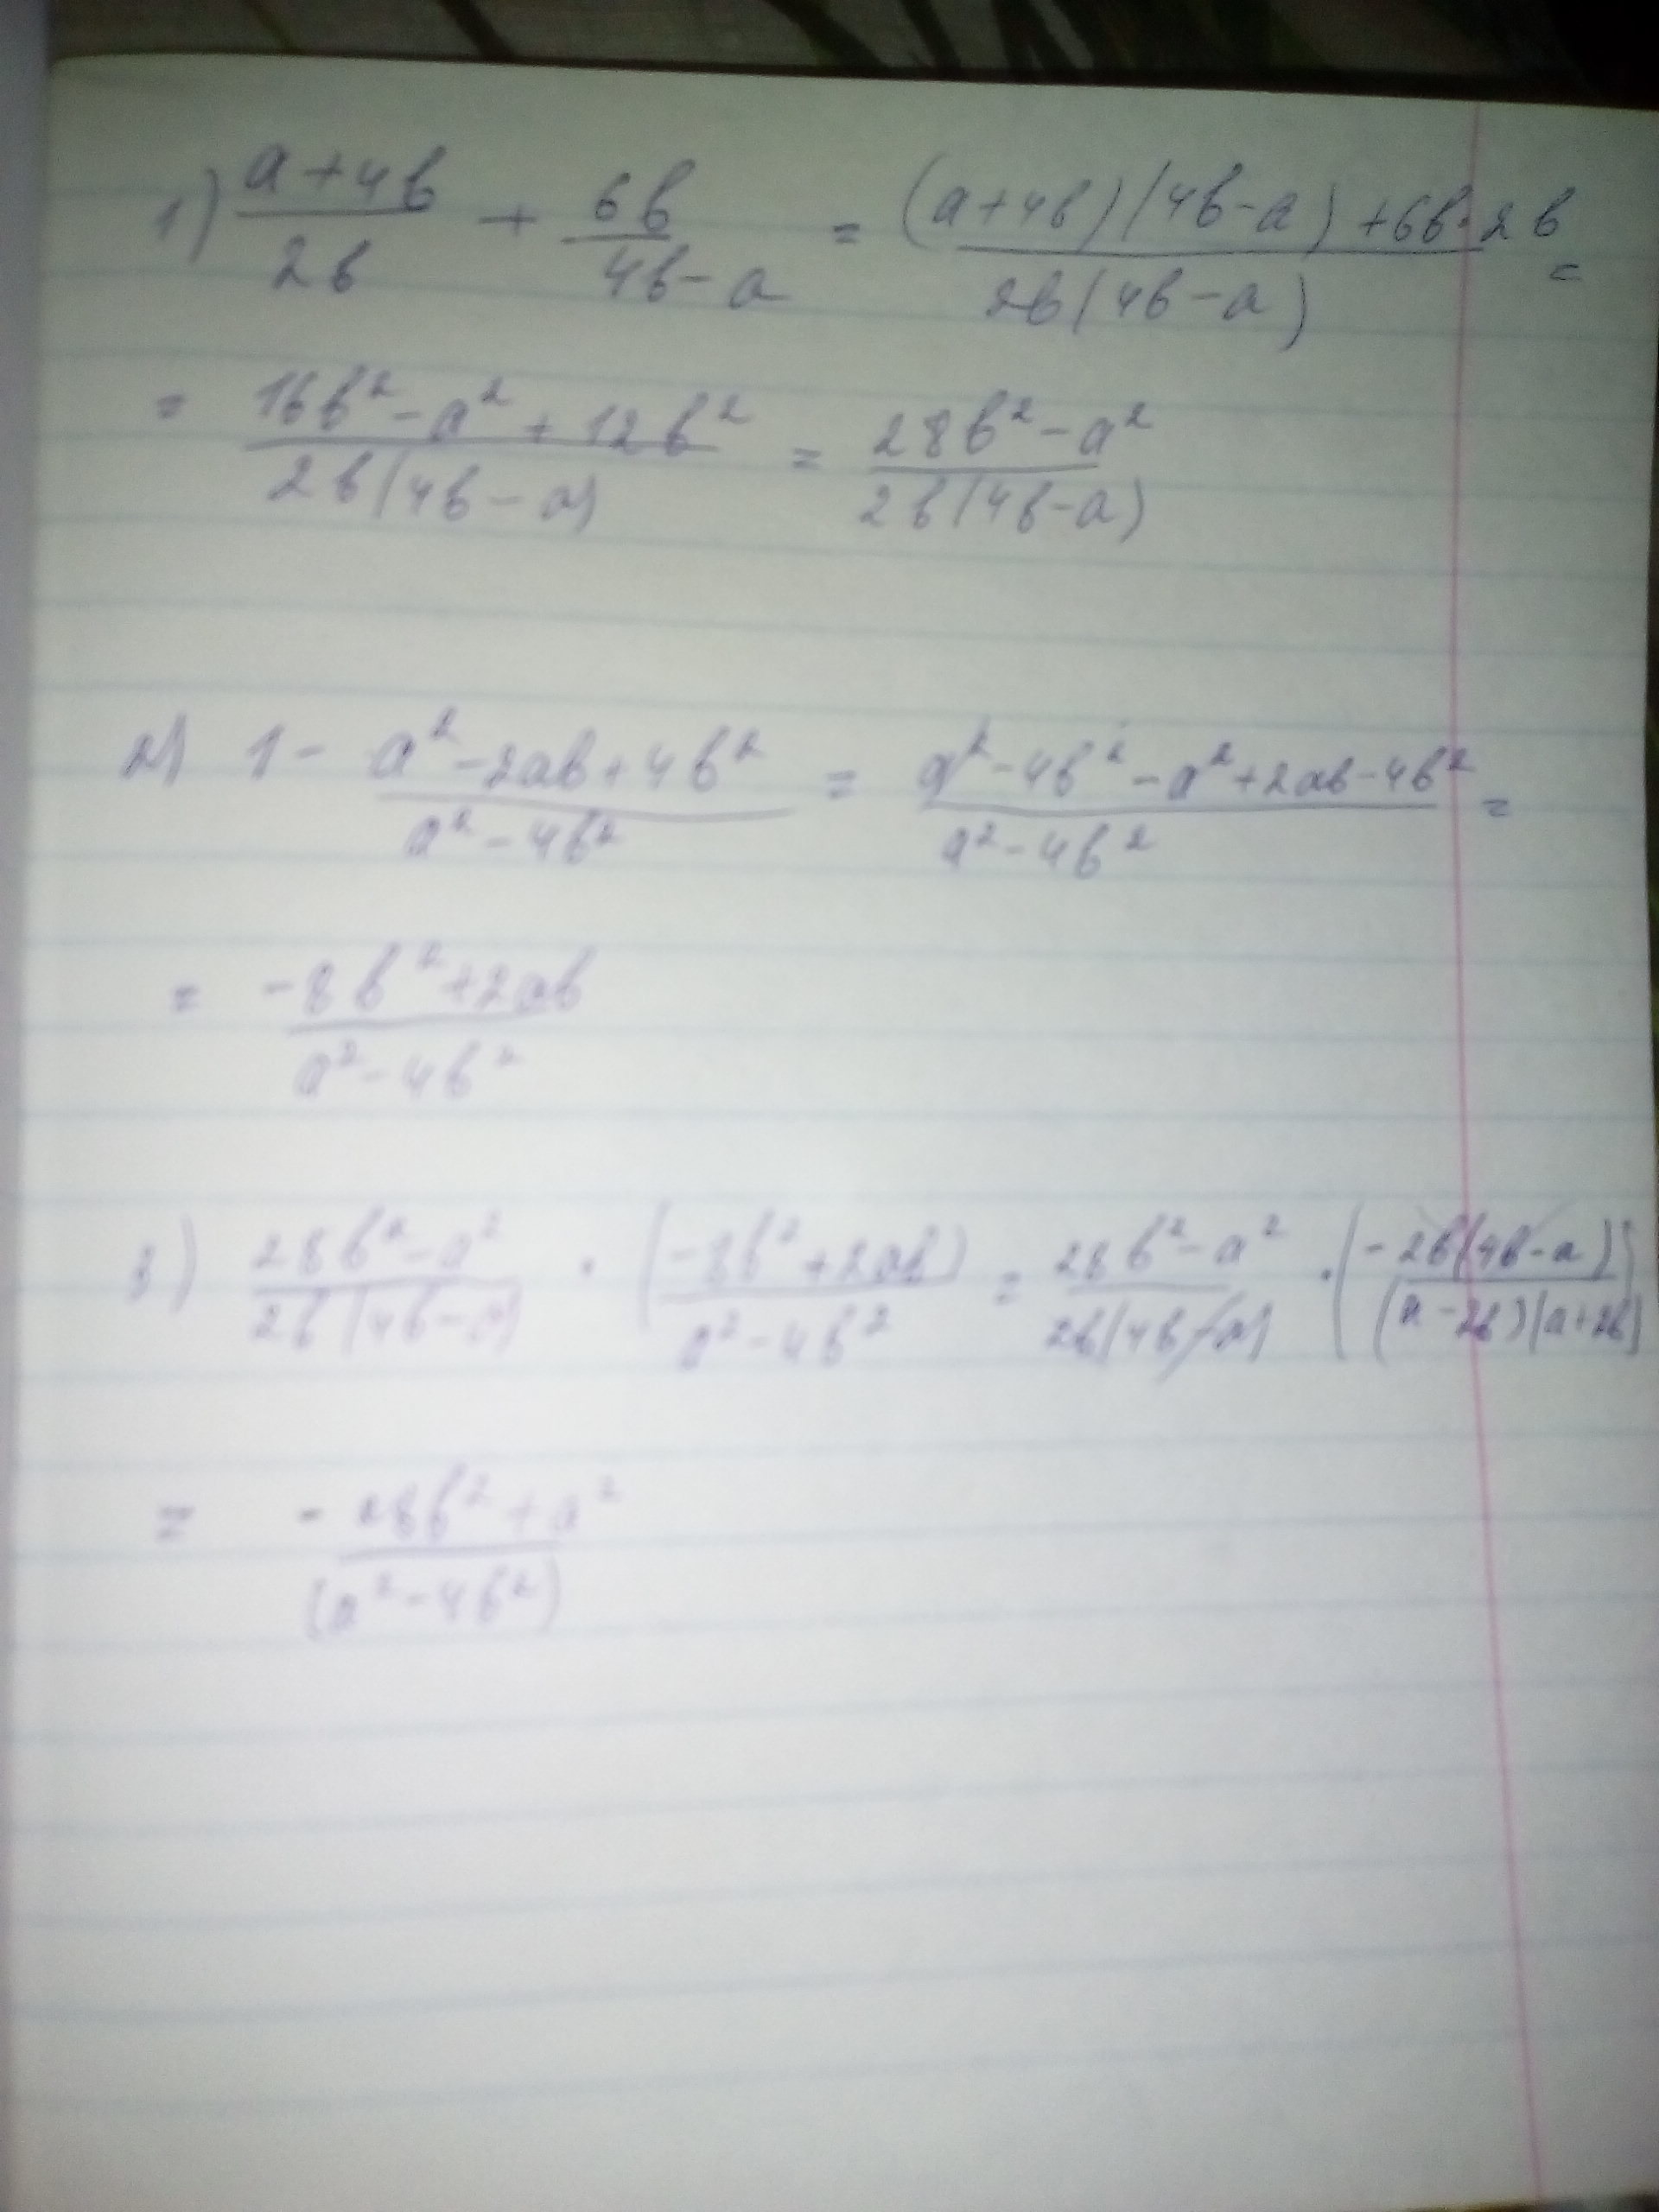 1) (a+4b)/(2b) + (6b)/(4b-a) = ((a+4b)(4b-a)+6b·2b)/(2b(4b-a)) =
= (16b²-a²+12b²)/(2b(4b-a)) = (28b²-a²)/(2b(4b-a))
2) 1 - (a²-2ab+4b²)/(a²-4b²) = (a²-4b²-a²+2ab-4b²)/(a²-4b²) =
= (-8b²+2ab)/(a²-4b²)
3) (28b²-a²)/(2b(4b-a)) · ((-8b²+2ab)/(a²-4b²)) = (28b²-a²)/(2b(4b-a)) · (-(2b(4b-a))/((a-2b)(a+2b)))
= - (28b²+a²)/((a²-4b²))